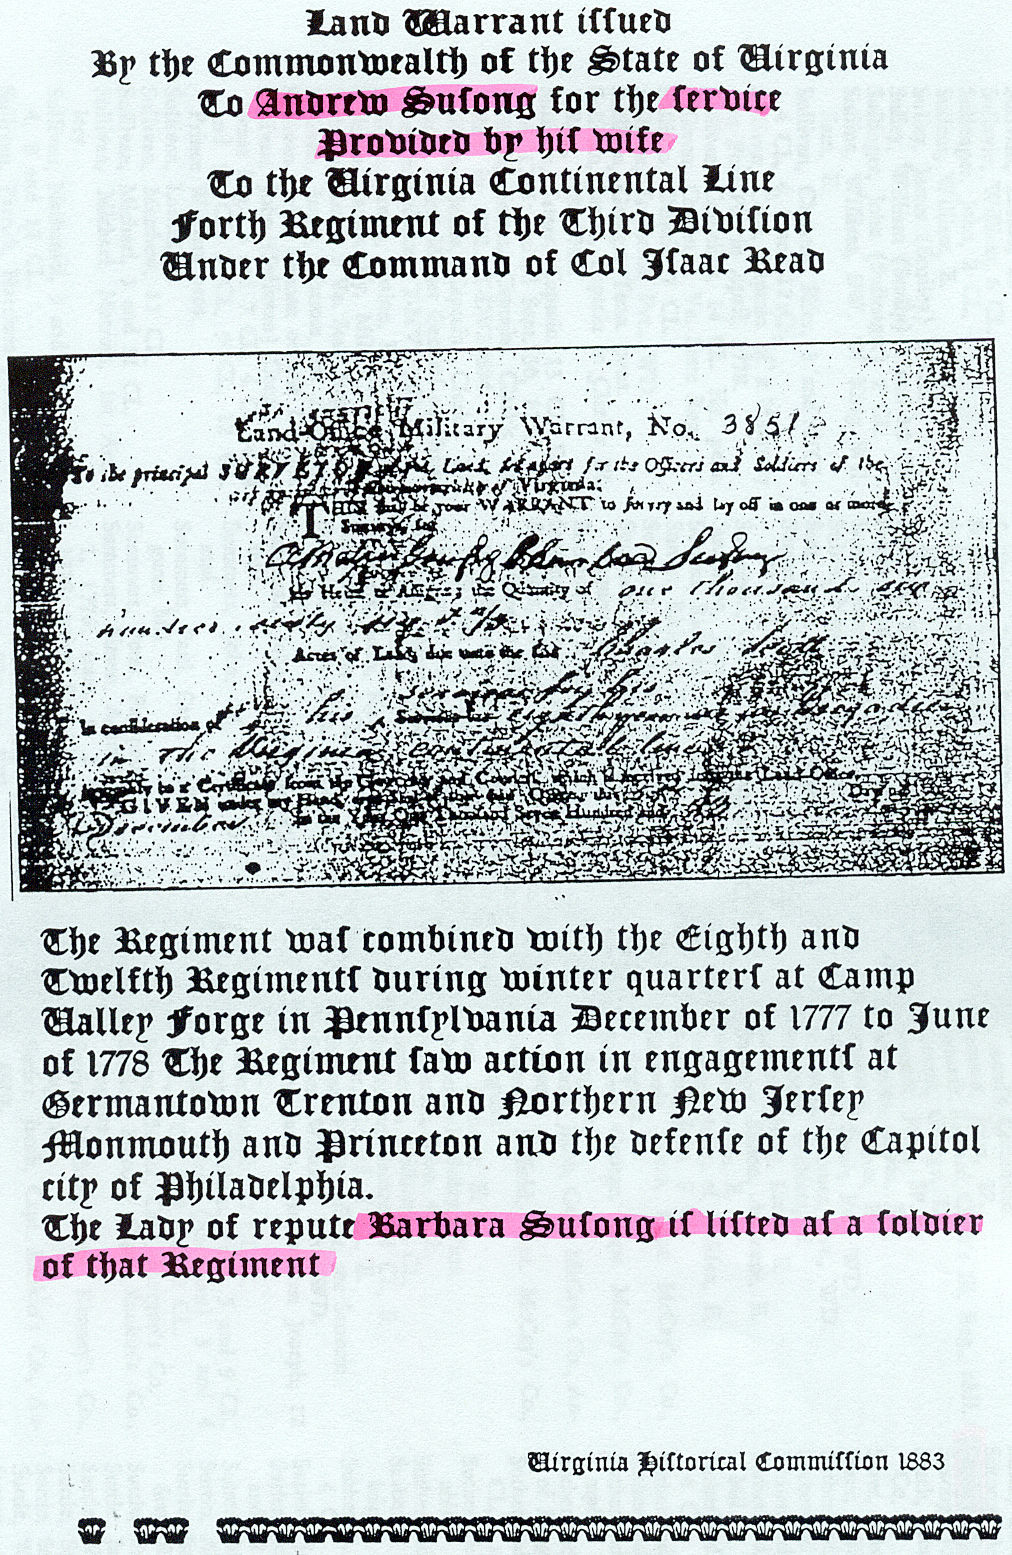 Land Warrant iſſued
By the Commonwealth of the State of Virginia
To Andrew Suſong for the ſervice
Provided by hiſ wife
To the Virginia Continental Line
Forth Regiment of the Third Diviſion
Under the Command of Col Iſaac Read
Land-Office Military Warrant, No. 3851
To the principal SURVEYOR Land, for the Officers and Soldiers of the
of Virginia:
THIS shall be your WARRANT to survey and lay off in one or more
Surveys, for
Heirs or Assigns, the Quantity of one thousand
hundred
Acres of Land, due unto the said Charles Scott
In consideration of his Services
in The Virginia continental line
to a Certificate from the Governor and Council, which is received into the Land-Office.
GIVEN under my Hand, and Seal of Office, this Day of
December in the Year One Thousand Seven Hundred and 83
The Regiment waſ combined with the Eighth and
Twelfth Regimentſ during winter quarterſ at Camp
Valley Forge in Pennſylvania December of 1777 to June
of 1778 The Regiment ſaw action in engagementſ at
Germantown Trenton and Northern New Jerſey
Monmouth and Princeton and the defenſe of the Capitol
city of Philadelphia.
The Lady of repute Barbara Suſong iſ liſted aſ a ſoldier
of that Regiment
Virginia Hiſtorical Commiſſion 1883